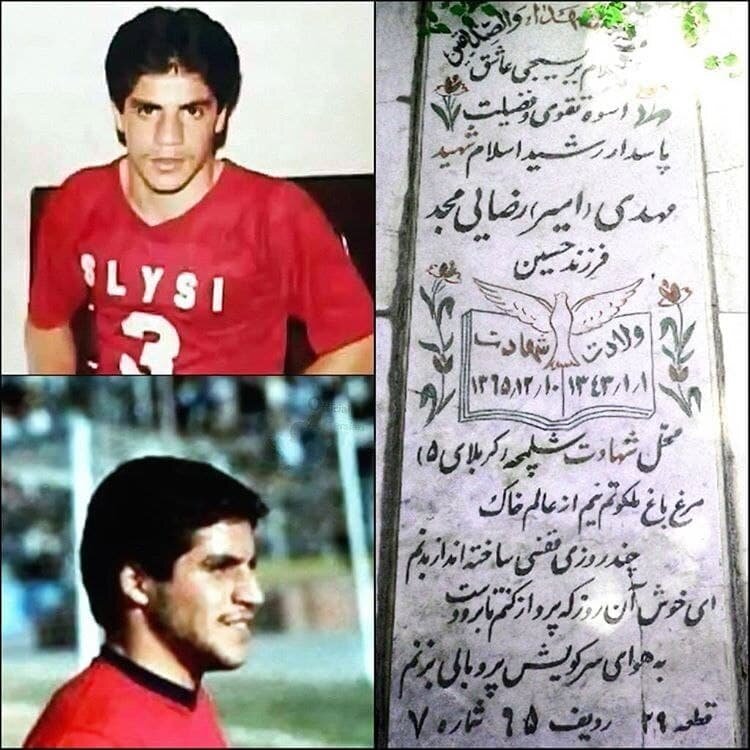 SLYSI
3
Official
عاشق
اسوه تقوی و فضیلت
پاسدار رشید اسلام شهید
مهدی (امیر) رضایی مجد
فرزند حسین
ولادت شهادت
۱۳۴۳٫۱٫۱ ۱۳۶۵٫۱۲٫۱۰
محل شهادت شلمچه (کربلای ۵)
مرغ باغ ملکوتم نیم از عالم خاک
چند روزی قفسی ساخته اند از بدنم
ای خوش آن روز که پرواز کنم تا بر دوست
به هوای سر کویش پر و بالی بزنم
قطعه ۲۹ ردیف ۶۵ شماره ۷